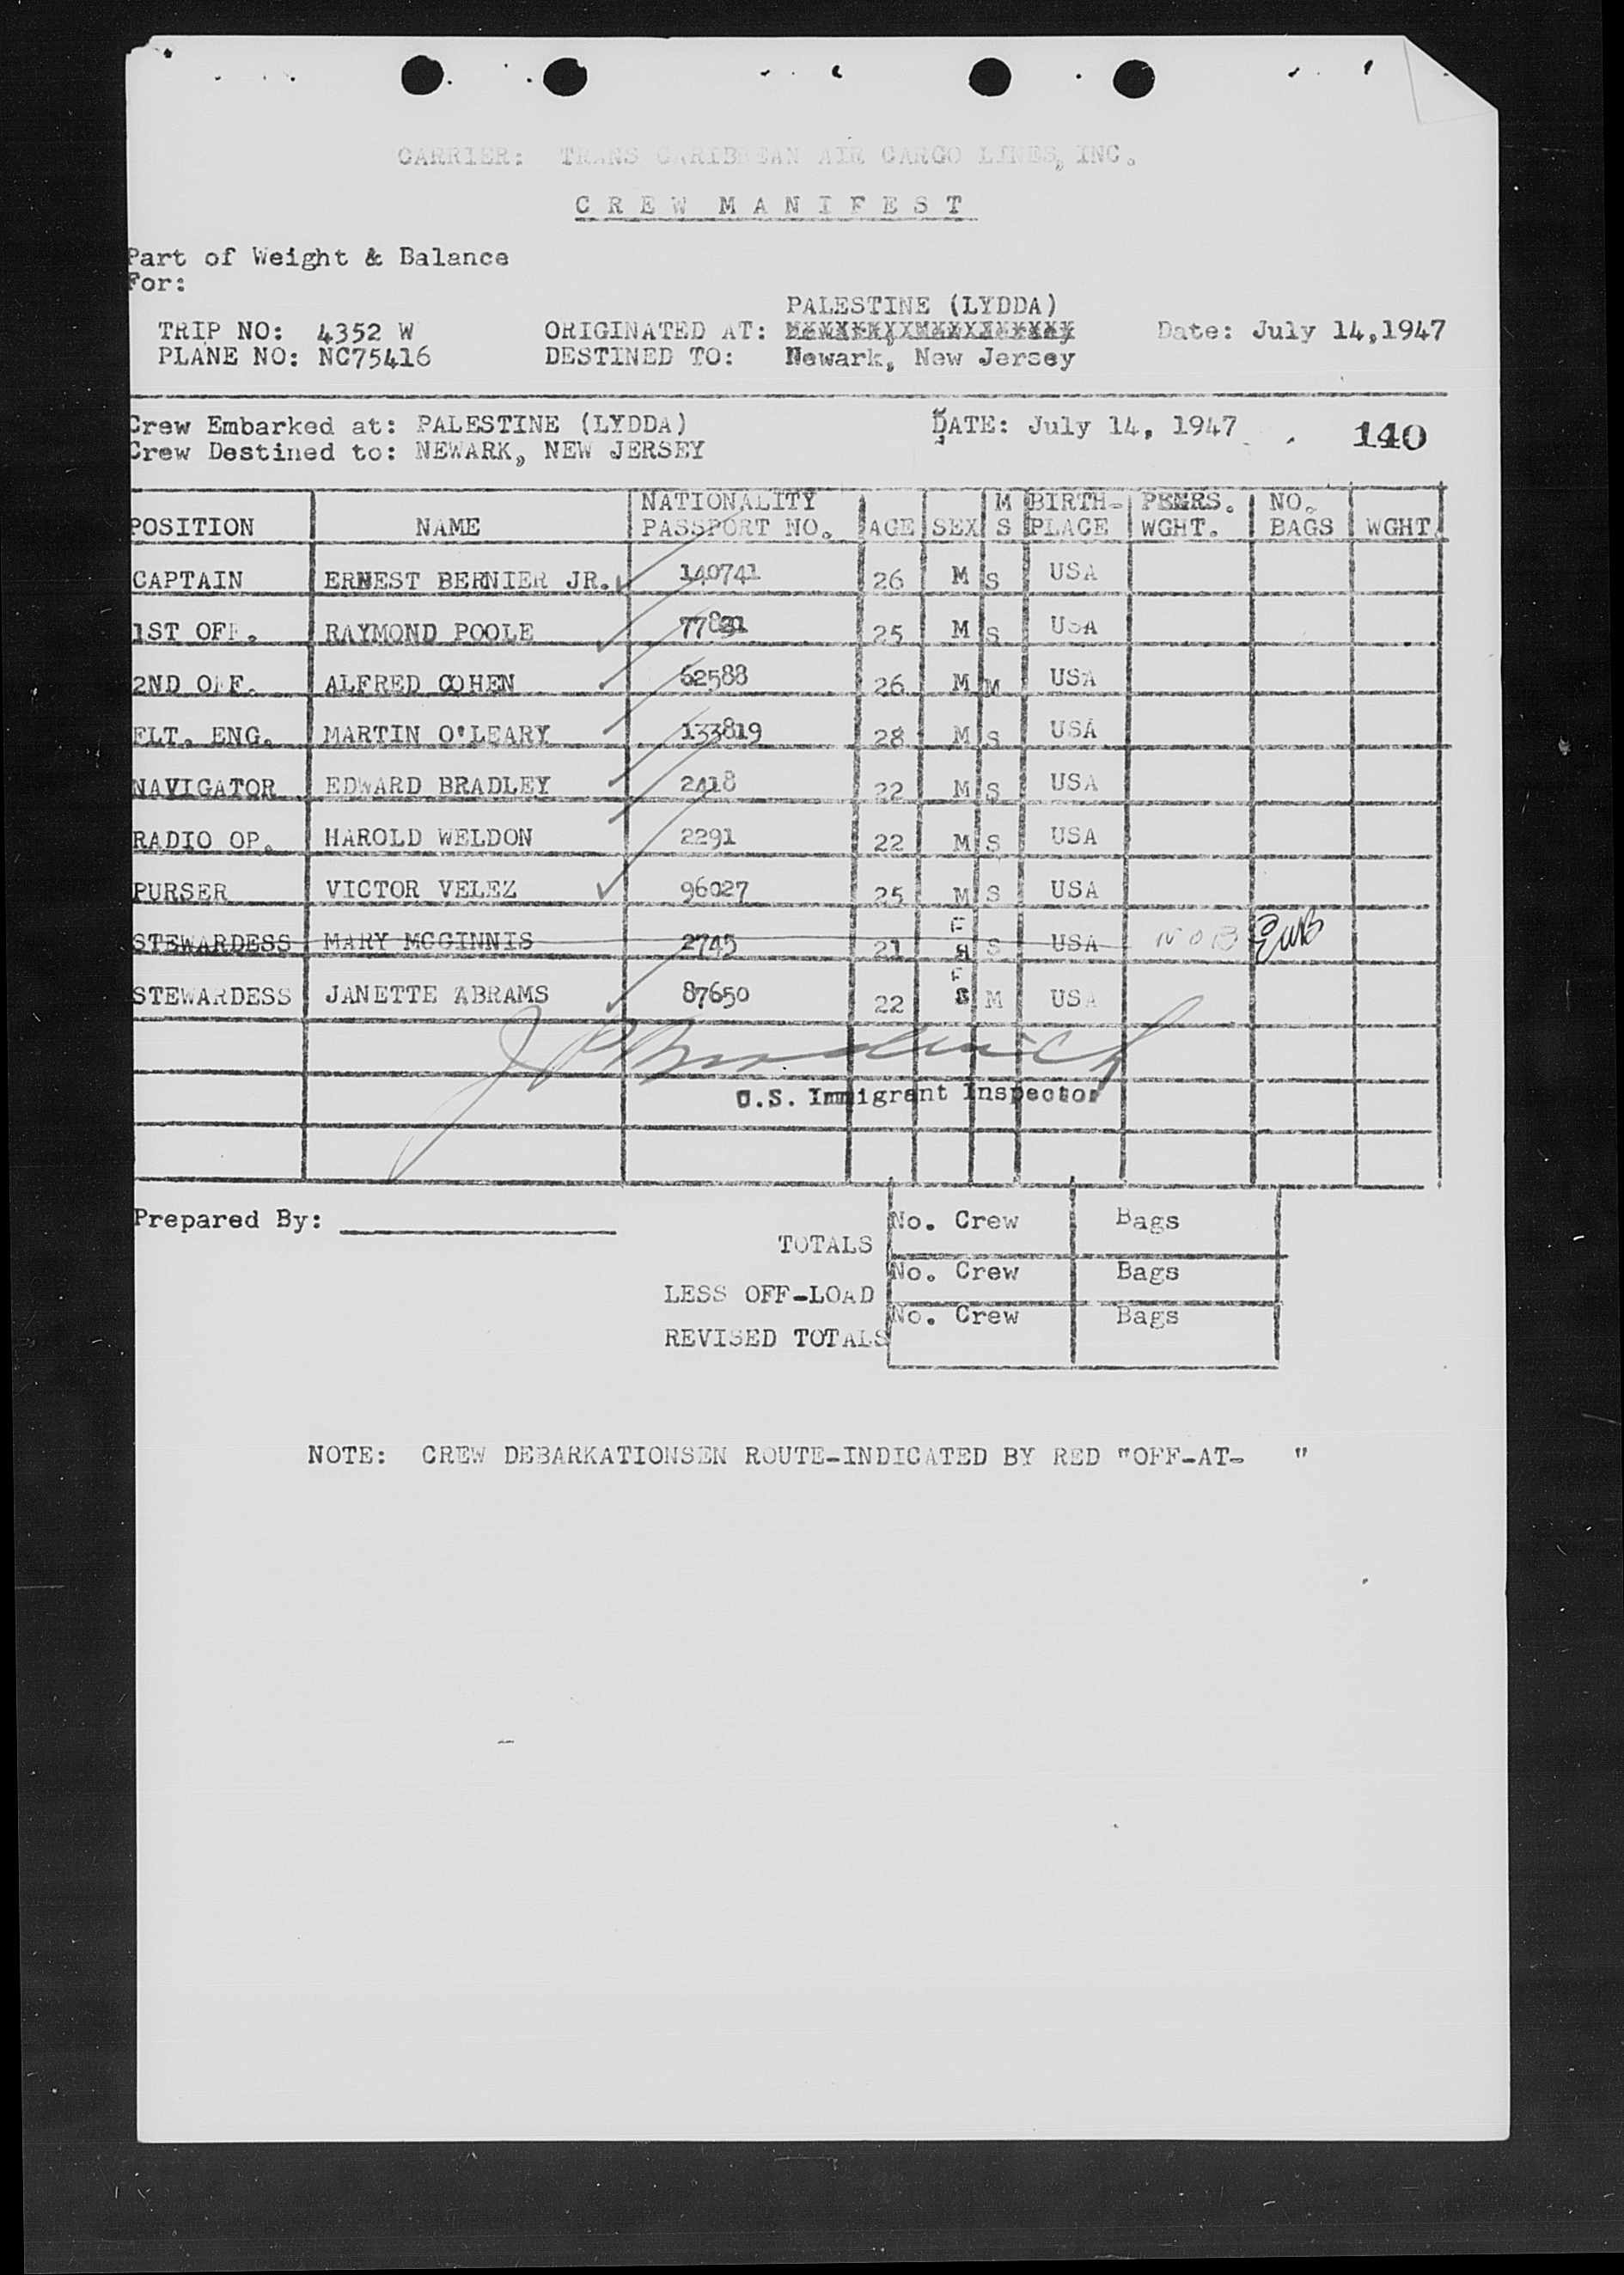 CARRIER: TRANS CARIBBEAN AIR CARGO LINES, INC.
CREW MANIFEST
Part of Weight & Balance
For:
PALESTINE (LYDDA)
TRIP NO: 4352 W ORIGINATED AT: Date: July 14,1947
PLANE NO: NC75416 DESTINED TO: Newark, New Jersey
Crew Embarked at: PALESTINE (LYDDA) DATE: July 14, 1947 140
Crew Destined to: NEWARK, NEW JERSEY
NATIONALITY M BIRTH- PSNRS. NO.
POSITION NAME PASSPORT NO. AGE SEX S PLACE WGHT. BAGS WGHT.
CAPTAIN ERNEST BERNIER JR. 140741 26 M S USA
1ST OFF. RAYMOND POOLE 25 M S USA
2ND OFF. ALFRED COHEN 62588 26 M M USA
FLT. ENG. MARTIN O'LEARY 133819 28 M S USA
NAVIGATOR EDWARD BRADLEY 2418 22 M S USA
RADIO OP. HAROLD WELDON 2291 22 M S USA
PURSER VICTOR VELEZ 96027 25 M S USA
STEWARDESS MARY MCGINNIS 2745 21 F S USA N O B EWB
STEWARDESS JANETTE ABRAMS 87650 22 F M USA
U.S. Immigrant Inspector
Prepared By:
TOTALS No. Crew Bags
LESS OFF-LOAD No. Crew Bags
REVISED TOTALS No. Crew Bags
NOTE: CREW DEBARKATIONSEN ROUTE-INDICATED BY RED "OFF-AT- "